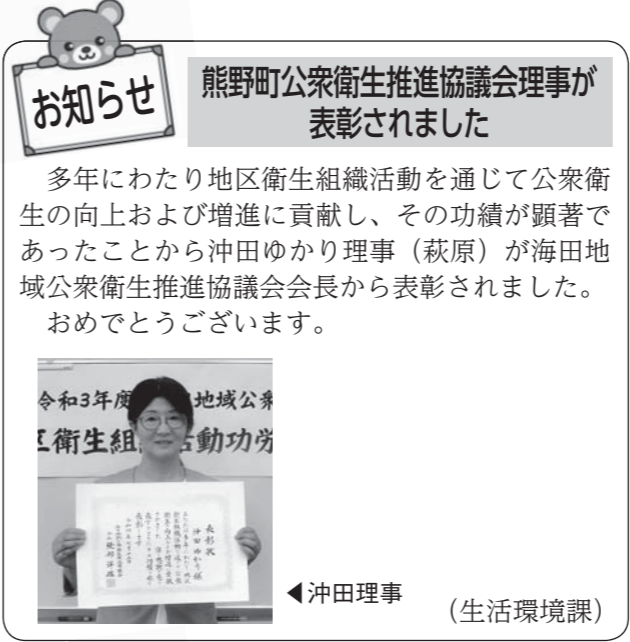 お知らせ
熊野町公衆衛生推進協議会理事が
表彰されました
多年にわたり地区衛生組織活動を通じて公衆衛
生の向上および増進に貢献し、その功績が顕著で
あったことから沖田ゆかり理事（萩原）が海田地
域公衆衛生推進協議会会長から表彰されました。
おめでとうございます。
令和3年度 地域公衆
区衛生組 動功労
表彰状
沖田ゆかり様
◀沖田理事
（生活環境課）